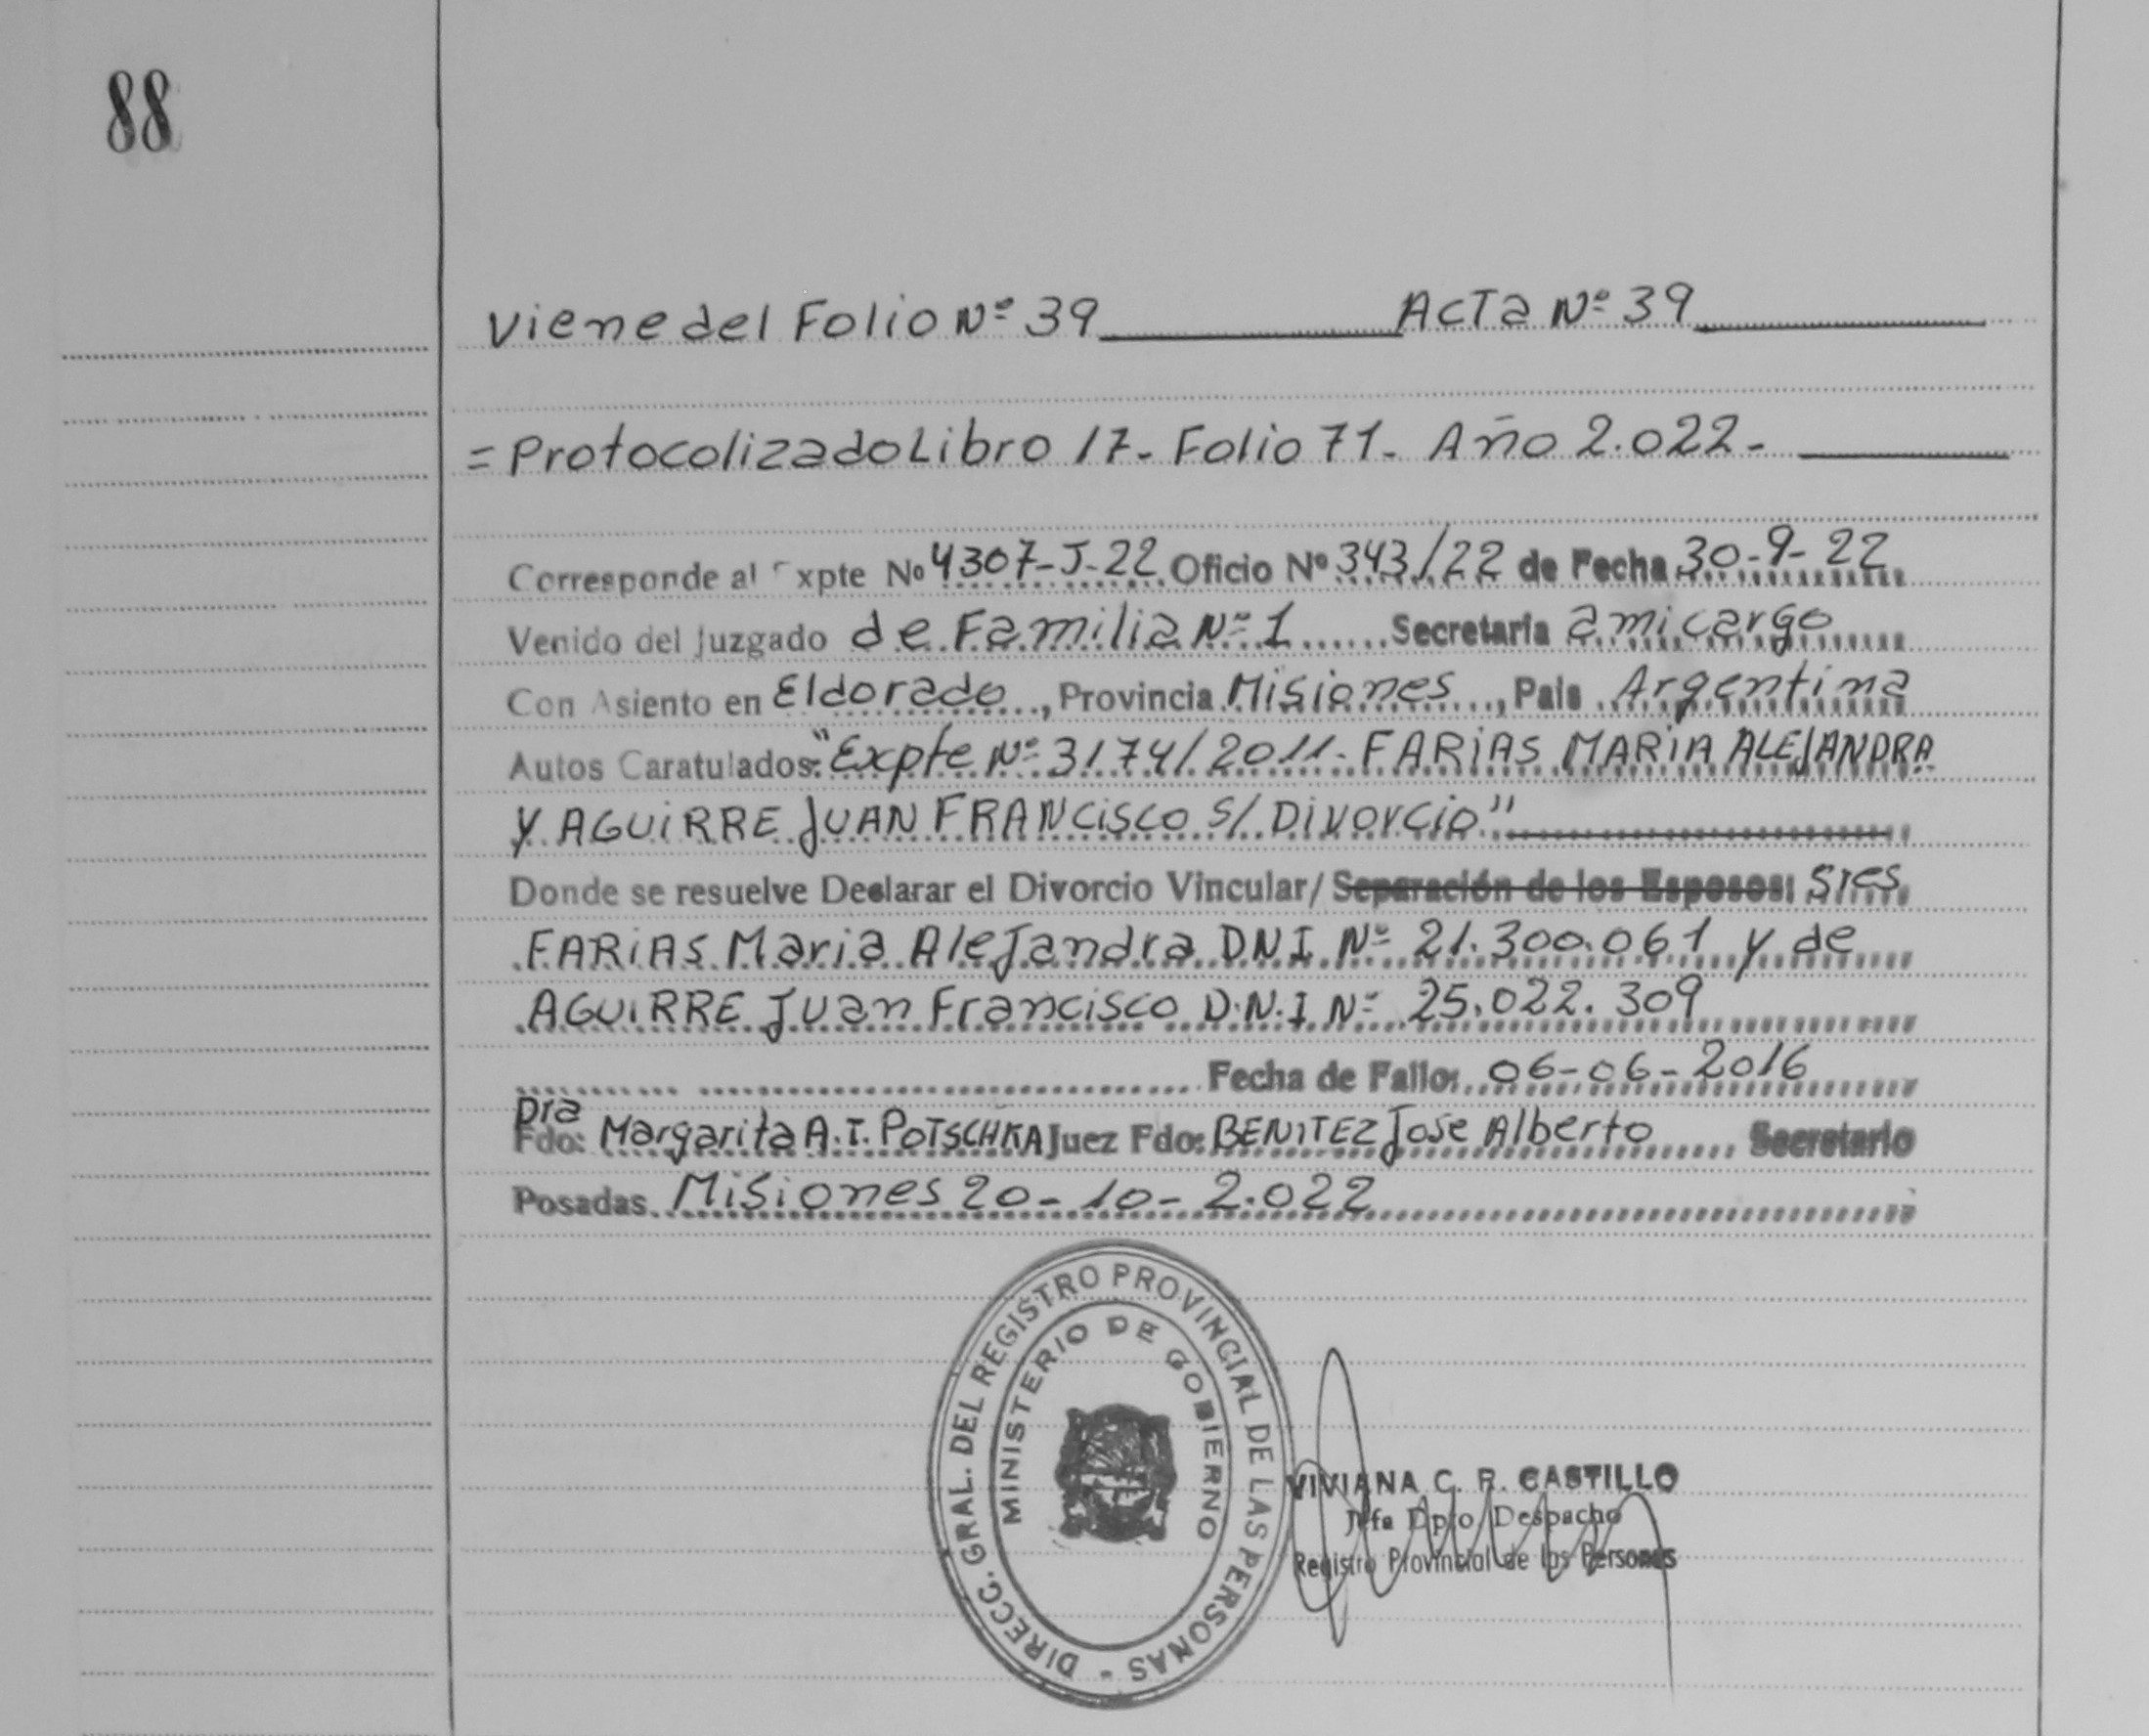 88
Viene del Folio Nº 39 Acta Nº 39
= Protocolizado Libro 17- Folio 71- Año 2.022-
Corresponde al Expte Nº 4307-J-22 Oficio Nº 343/22 de Fecha 30-9-22
Venido del Juzgado de Familia Nº 1 Secretaria a mi cargo
Con Asiento en Eldorado, Provincia Misiones, Pais Argentina
Autos Caratulados: "Expte Nº 3174/2011- FARIAS MARIA ALEJANDRA
Y AGUIRRE JUAN FRANCISCO S/ Divorcio"
Donde se resuelve Declarar el Divorcio Vincular/ Separación de los Esposos: Sres
FARIAS Maria Alejandra D.N.I. Nº 21.300.061 y de
AGUIRRE Juan Francisco D.N.I Nº 25.022.309
Fecha de Fallo: 06-06-2016
Dra
Fdo: Margarita A.T. POTSCHKA Juez Fdo: BENITEZ Jose Alberto Secretario
Posadas Misiones 20-10-2.022
DIRECC. GRAL. DEL REGISTRO PROVINCIAL DE LAS PERSONAS -
MINISTERIO DE GOBIERNO
VIVIANA C. R. CASTILLO
Jefe Dpto Despacho
Registro Provincial de las Personas